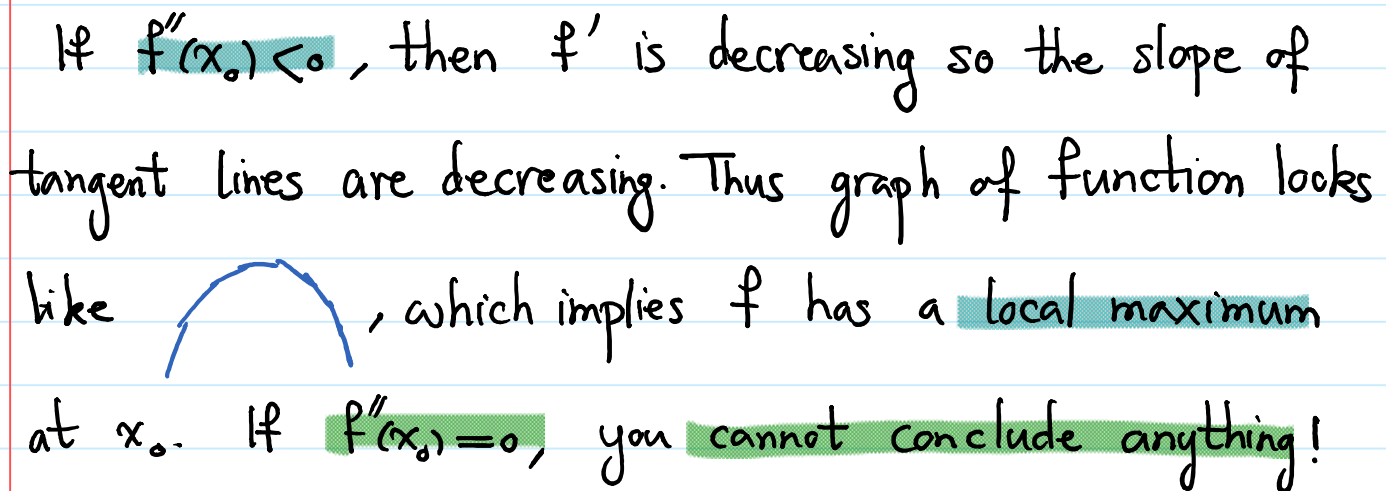 If f''(x₀)<0, then f' is decreasing so the slope of
tangent lines are decreasing. Thus graph of function looks
like , which implies f has a local maximum
at x₀. If f''(x₀)=0, you cannot conclude anything!